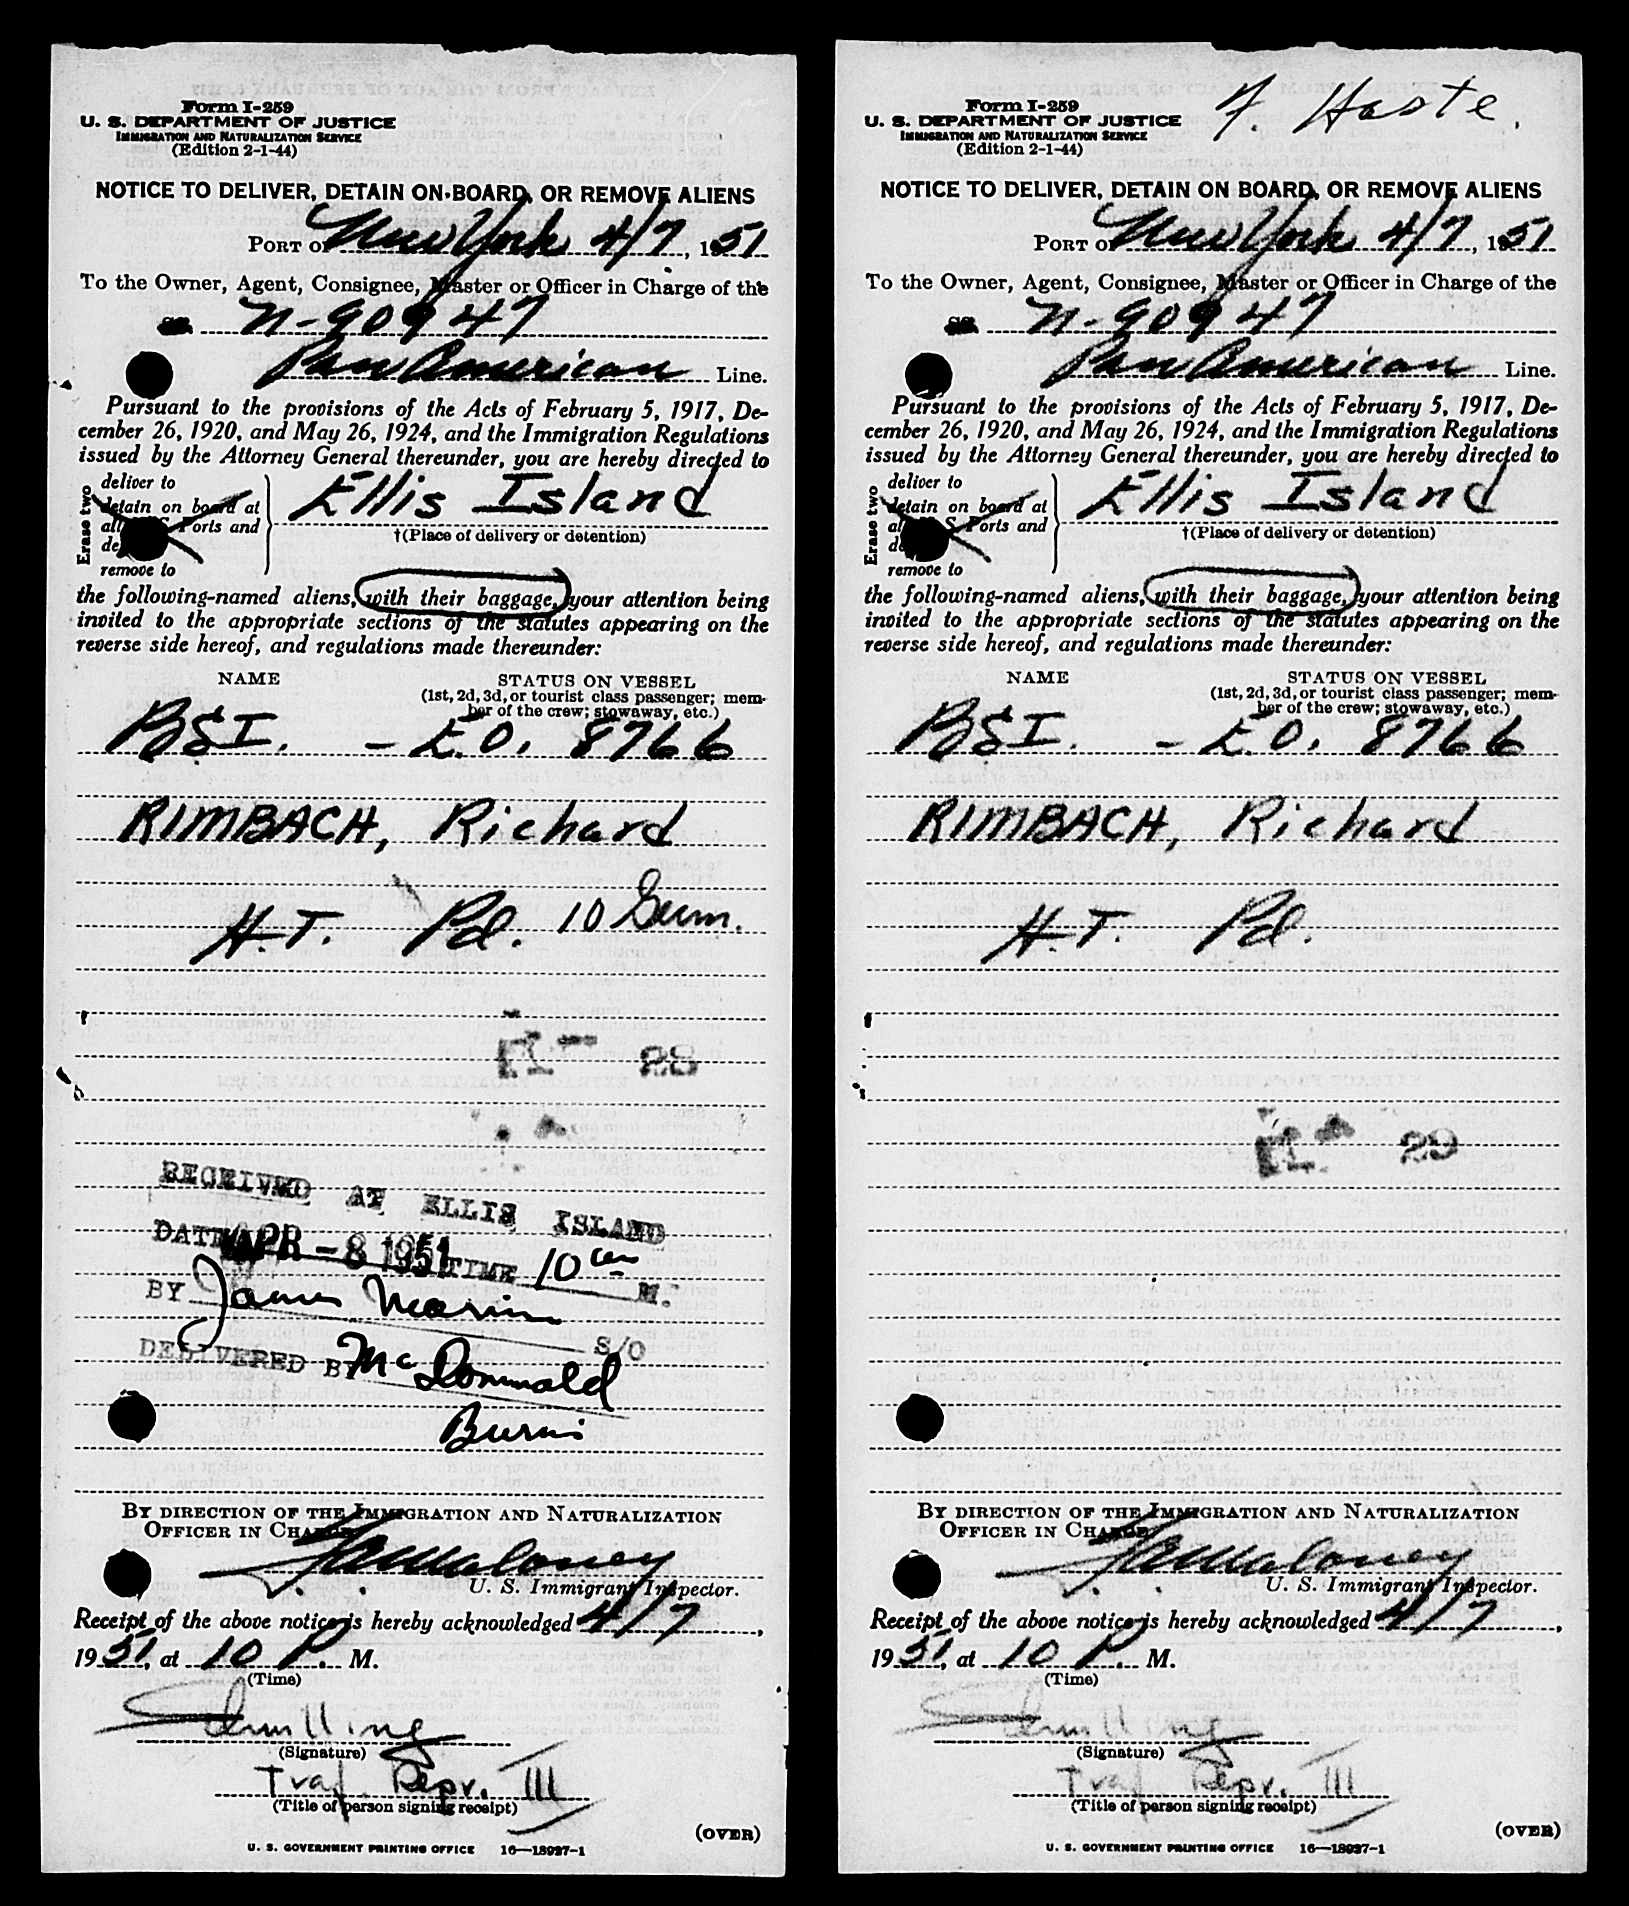 Form I-259
U. S. DEPARTMENT OF JUSTICE
IMMIGRATION AND NATURALIZATION SERVICE
(Edition 2-1-44)
NOTICE TO DELIVER, DETAIN ON BOARD, OR REMOVE ALIENS
PORT OF New York 4/7, 1951
To the Owner, Agent, Consignee, Master or Officer in Charge of the
SS. N-90947
Pan American Line.
Pursuant to the provisions of the Acts of February 5, 1917, De-
cember 26, 1920, and May 26, 1924, and the Immigration Regulations
issued by the Attorney General thereunder, you are hereby directed to
Erase two
deliver to
detain on board at
all U S Ports and
remove to
Ellis Island
†(Place of delivery or detention)
the following-named aliens, with their baggage, your attention being
invited to the appropriate sections of the statutes appearing on the
reverse side hereof, and regulations made thereunder:
NAME
STATUS ON VESSEL
(1st, 2d, 3d, or tourist class passenger; mem-
ber of the crew; stowaway, etc.)
BSI. - E.O. 8766
RIMBACH, Richard
H.T. Pd. 10 Germ.
28
RECEIVED AT ELLIS ISLAND
DATE APR - 8 1951 TIME 10 am M.
BY James
S/O
DELIVERED BY McDonnald
Burns
BY DIRECTION OF THE IMMIGRATION AND NATURALIZATION
OFFICER IN CHARGE
Maloney
U. S. Immigrant Inspector.
Receipt of the above notice is hereby acknowledged 4/7,
1951, at 10 P. M.
(Time)
(Signature)
Traf. Repr. III
(Title of person signing receipt)
(OVER)
U. S. GOVERNMENT PRINTING OFFICE 16—18927-1
Form I-259
U. S. DEPARTMENT OF JUSTICE
IMMIGRATION AND NATURALIZATION SERVICE
(Edition 2-1-44)
F. Haste.
NOTICE TO DELIVER, DETAIN ON BOARD, OR REMOVE ALIENS
PORT OF New York 4/7, 1951
To the Owner, Agent, Consignee, Master or Officer in Charge of the
SS. N-90947
Pan American Line.
Pursuant to the provisions of the Acts of February 5, 1917, De-
cember 26, 1920, and May 26, 1924, and the Immigration Regulations
issued by the Attorney General thereunder, you are hereby directed to
Erase two
deliver to
detain on board at
all U S Ports and
remove to
Ellis Island
†(Place of delivery or detention)
the following-named aliens, with their baggage, your attention being
invited to the appropriate sections of the statutes appearing on the
reverse side hereof, and regulations made thereunder:
NAME
STATUS ON VESSEL
(1st, 2d, 3d, or tourist class passenger; mem-
ber of the crew; stowaway, etc.)
BSI. - E.O. 8766
RIMBACH, Richard
H.T. Pd.
29
BY DIRECTION OF THE IMMIGRATION AND NATURALIZATION
OFFICER IN CHARGE
Maloney
U. S. Immigrant Inspector.
Receipt of the above notice is hereby acknowledged 4/7,
1951, at 10 P. M.
(Time)
(Signature)
Traf. Repr. III
(Title of person signing receipt)
(OVER)
U. S. GOVERNMENT PRINTING OFFICE 16—18927-1